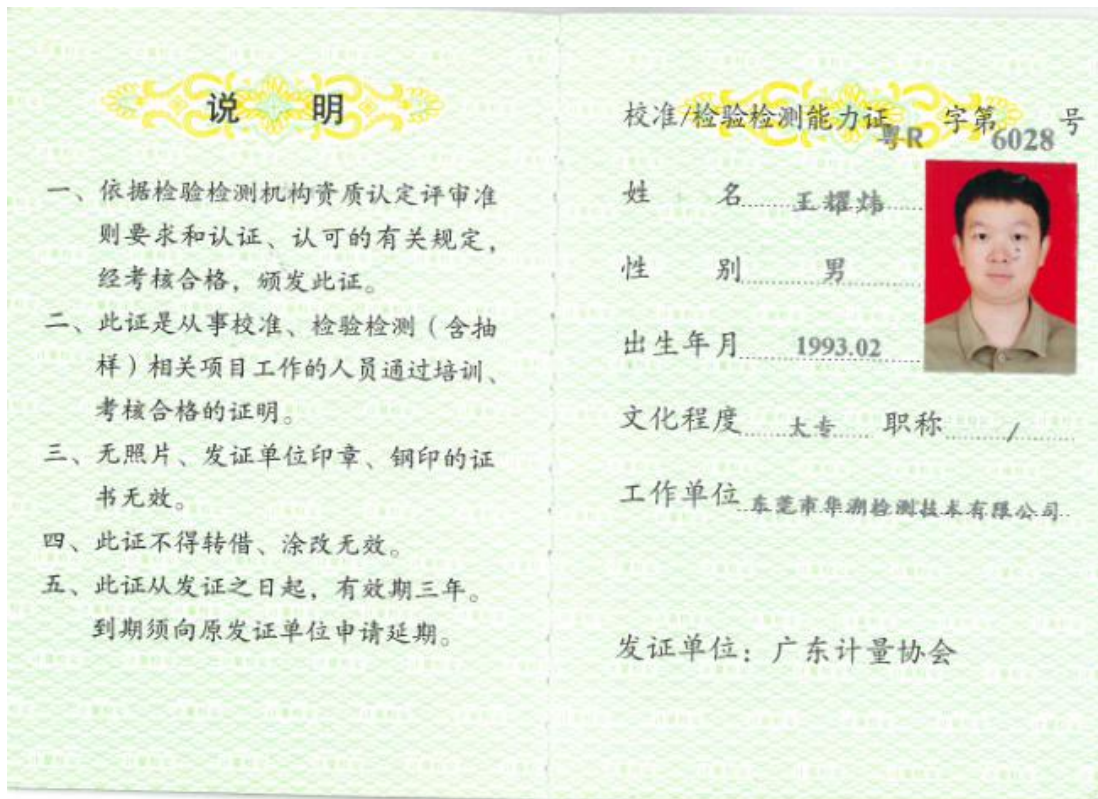 说 明
一、依据检验检测机构资质认定评审准
则要求和认证、认可的有关规定，
经考核合格，颁发此证。
二、此证是从事校准、检验检测（含抽
样）相关项目工作的人员通过培训、
考核合格的证明。
三、无照片、发证单位印章、钢印的证
书无效。
四、此证不得转借、涂改无效。
五、此证从发证之日起，有效期三年。
到期须向原发证单位申请延期。
校准/检验检测能力证粤R 字第6028号
姓 名 王耀炜
性 别 男
出生年月 1993.02
文化程度 大专 职称 /
工作单位 东莞市华溯检测技术有限公司
发证单位：广东计量协会